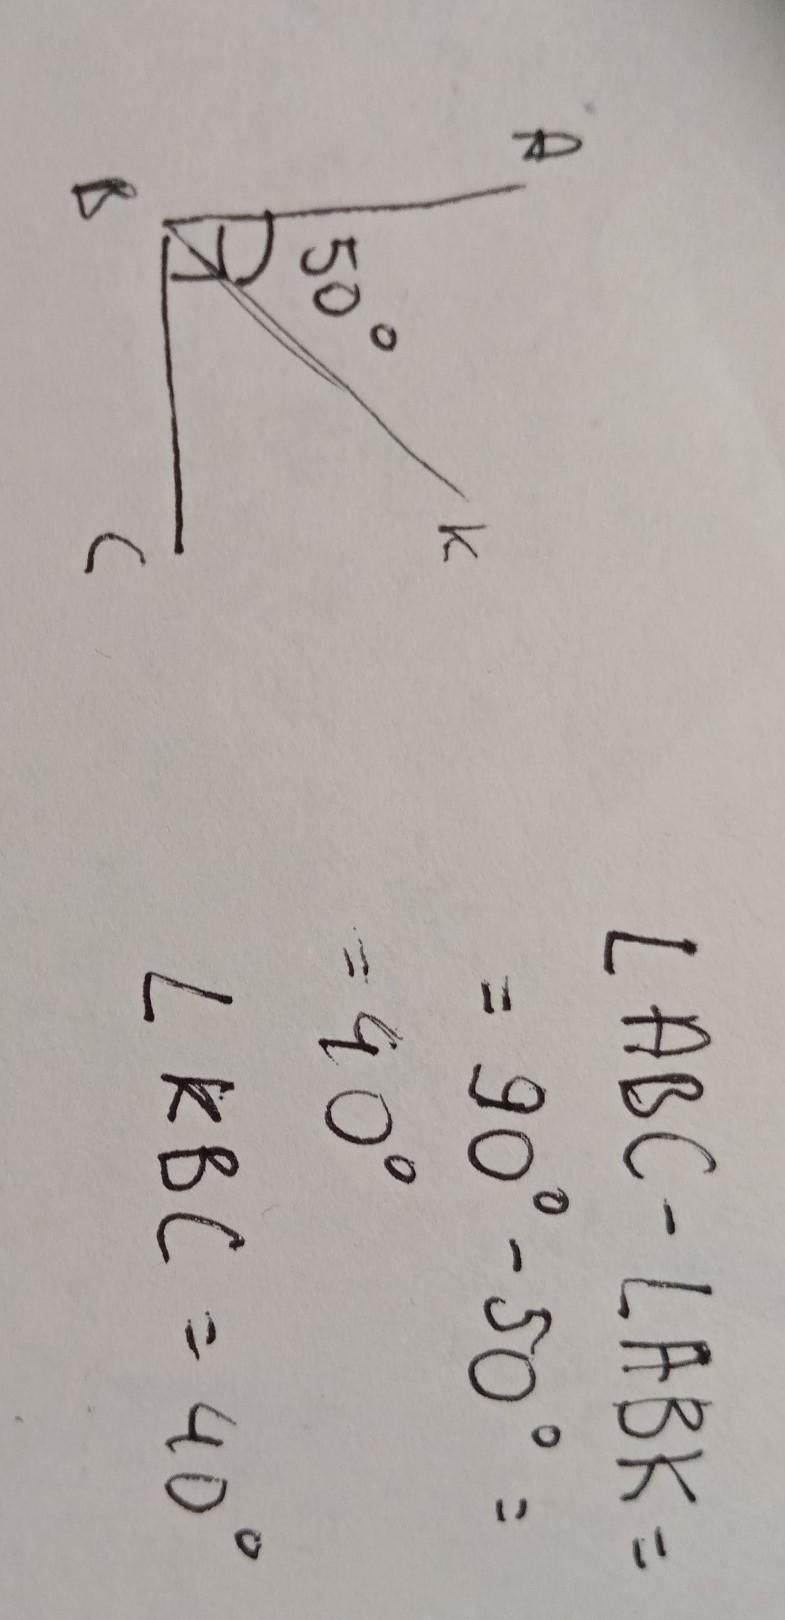 A
50°
K
B
C
∠ABC - ∠ABK =
= 90° - 50° =
= 40°
∠KBC = 40°